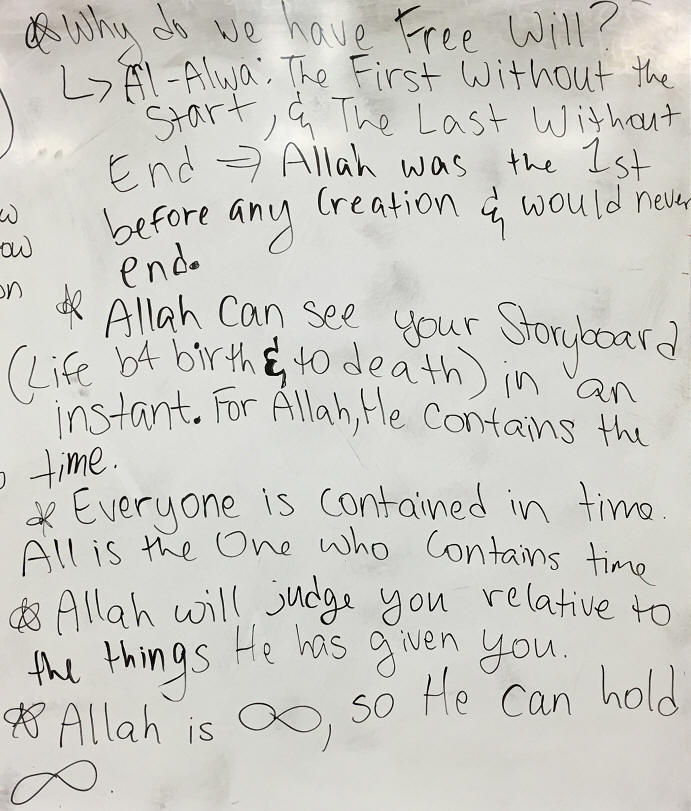 * Why do we have Free Will?
↳ Al-Alwa: The First Without the
Start, & The Last Without
End ⇒ Allah was the 1st
before any Creation & would never
end.
* Allah Can see your Storyboard
(Life b4 birth & to death) in an
instant. For Allah, He Contains the
time.
* Everyone is contained in time.
All is the One who Contains time
* Allah will judge you relative to
the things He has given you.
* Allah is ∞, so He can hold
∞.